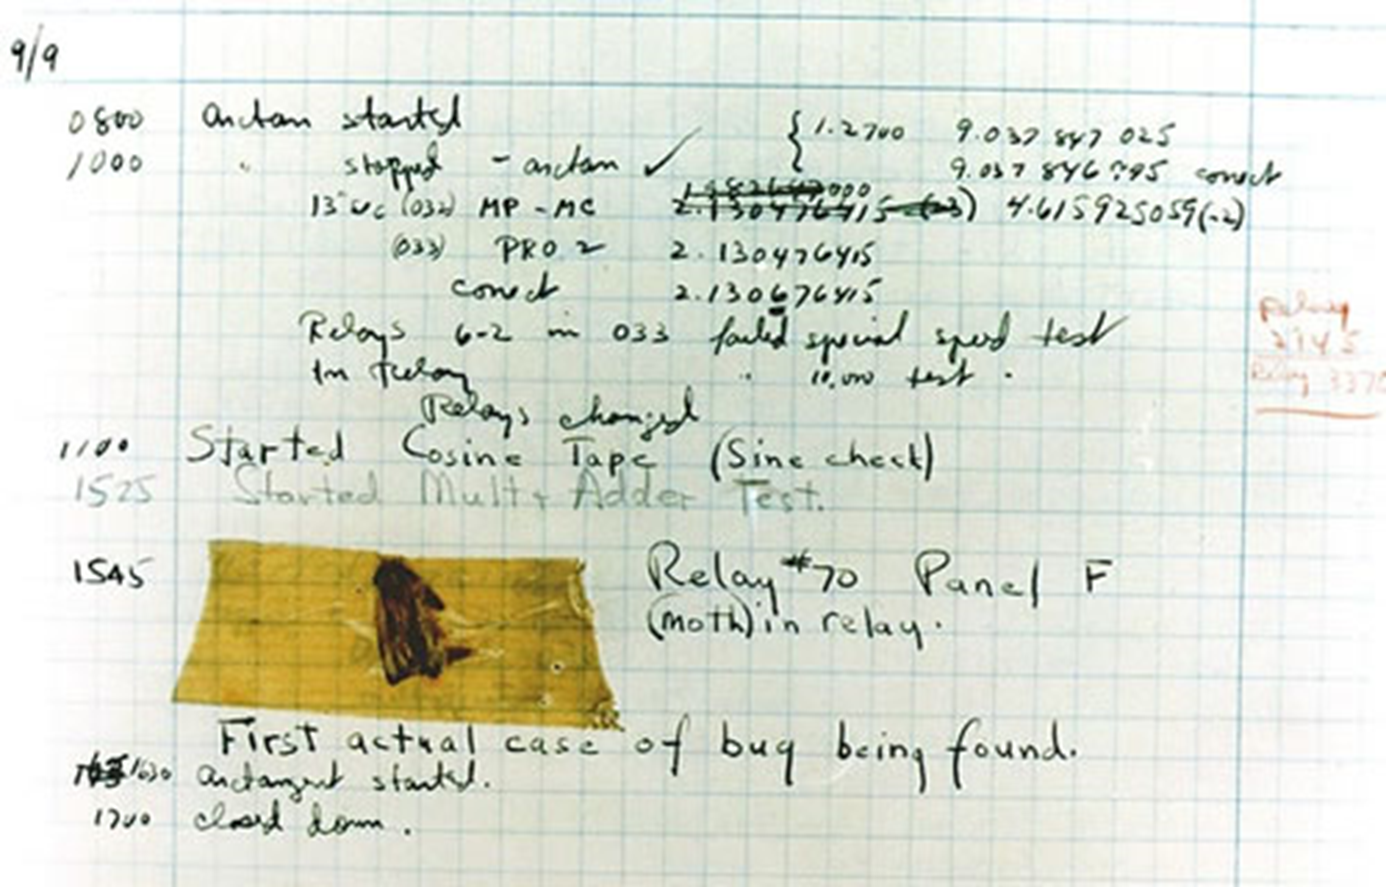 9/9
0800 antan started { 1.2700 9.037 847 025
1000 " stopped - antan ✓ 9.037 846 995 conect
13"uc (032) MP - MC 2.130476415 (-3) 4.615925059(-2)
(033) PRO 2 2.130476415
conect 2.130676415
Relays 6-2 in 033 failed special speed test
In Relay " 10,000 test.
Relay
2145
Relay 3370
Relays changed
1100 Started Cosine Tape (Sine check)
1525 Started Mult + Adder Test.
1545 Relay #70 Panel F
(moth) in relay.
First actual case of bug being found.
1630 antangent started.
1700 closed down.